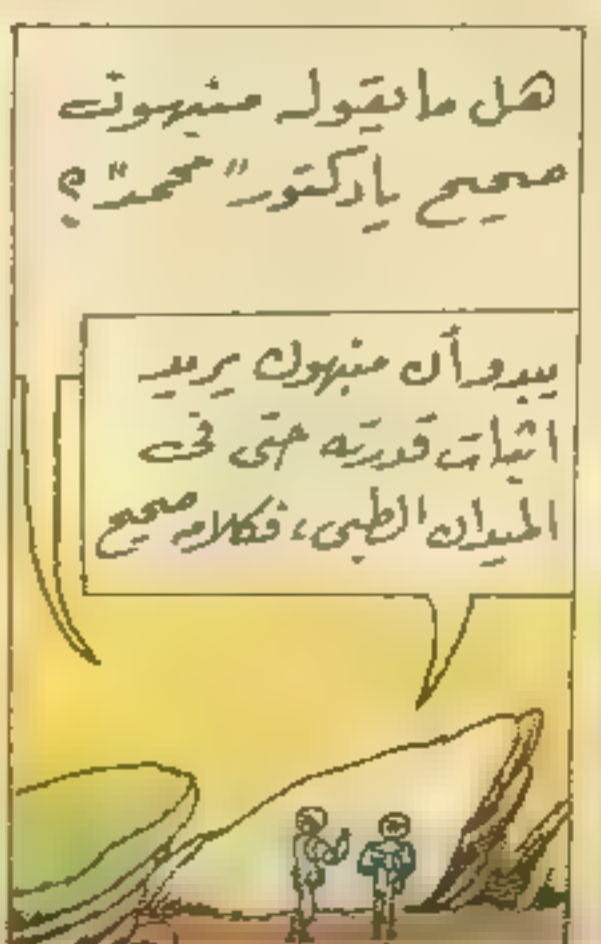 هل ما يقوله منبهوت
صحيح يا دكتور "محمد"؟
يبدو أن منبهوت يريد
اثبات قدرته حتى فى
الميدان الطبى، فكلامه صحيح